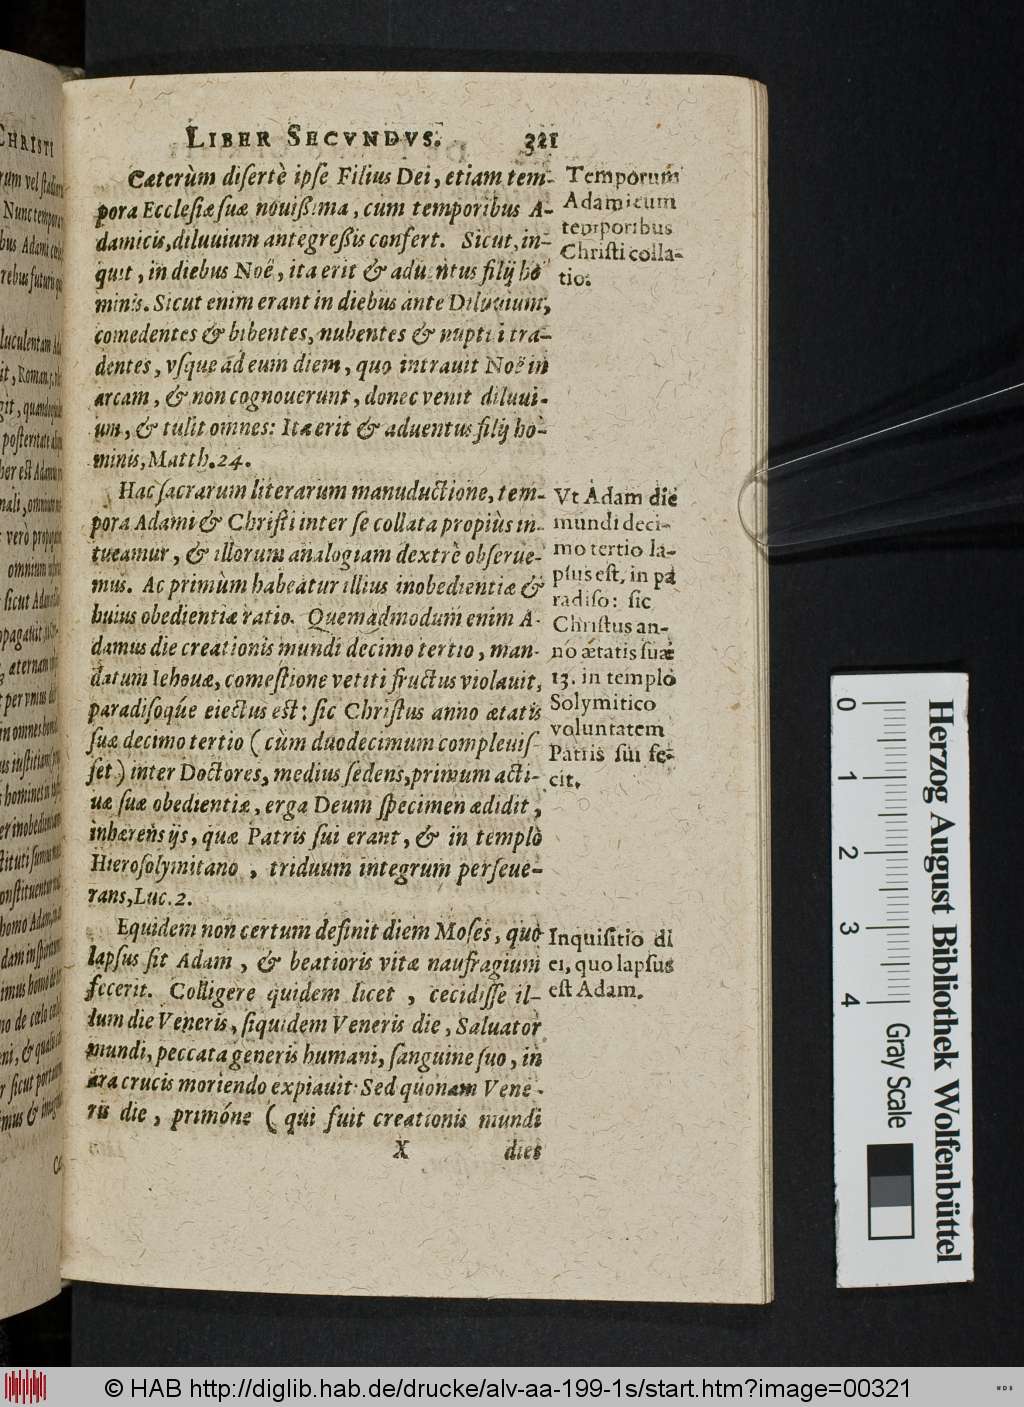 LIBER SECVNDVS. 321
Cæterùm disertè ipse Filius Dei, etiam tem-
pora Ecclesiæ suæ nouißima, cum temporibus A-
damicis, diluuium antegreßis confert. Sicut, in-
quit, in diebus Noë, ita erit & aduentus filij ho
minis. Sicut enim erant in diebus ante Diluuium,
comedentes & bibentes, nubentes & nuptui tra-
dentes, vsque ad eum diem, quo intrauit Noë in
arcam, & non cognouerunt, donec venit diluui-
um, & tulit omnes: Ita erit & aduentus filij ho-
minis, Matth. 24.
Temporum
Adamicum
temporibus
Christi colla-
tio.
Hac sacrarum literarum manuductione, tem-
pora Adami & Christi inter se collata propiùs in-
tueamur, & illorum analogiam dextrè obserue-
mus. Ac primùm habeatur illius inobedientiæ &
huius obedientiæ ratio. Quemadmodum enim A-
damus die creationis mundi decimo tertio, man-
datum Iehouæ, comestione vetiti fructus violauit,
paradisoque eiectus est: sic Christus anno ætatis
suæ decimo tertio (cùm duodecimum compleuis-
set) inter Doctores, medius sedens, primum acti-
uæ suæ obedientiæ, erga Deum specimen ædidit,
inhærens ijs, quæ Patris sui erant, & in templo
Hierosolymitano, triduum integrum perseue-
rans, Luc. 2.
Vt Adam die
mundi deci-
mo tertio la-
psus est, in pa
radiso: sic
Christus an-
no ætatis suæ
13. in templo
Solymitico
voluntatem
Patris sui fe-
cit.
Equidem non certum definit diem Moses, quo
lapsus sit Adam, & beatioris vitæ naufragium
fecerit. Colligere quidem licet, cecidisse il-
lum die Veneris, siquidem Veneris die, Saluator
mundi, peccata generis humani, sanguine suo, in
ara crucis moriendo expiauit. Sed quonam Vene-
ris die, primóne (qui fuit creationis mundi
Inquisitio di
ei, quo lapsus
est Adam.
X dies
Herzog August Bibliothek Wolfenbüttel
0 1 2 3 4 Gray Scale
© HAB http://diglib.hab.de/drucke/alv-aa-199-1s/start.htm?image=00321